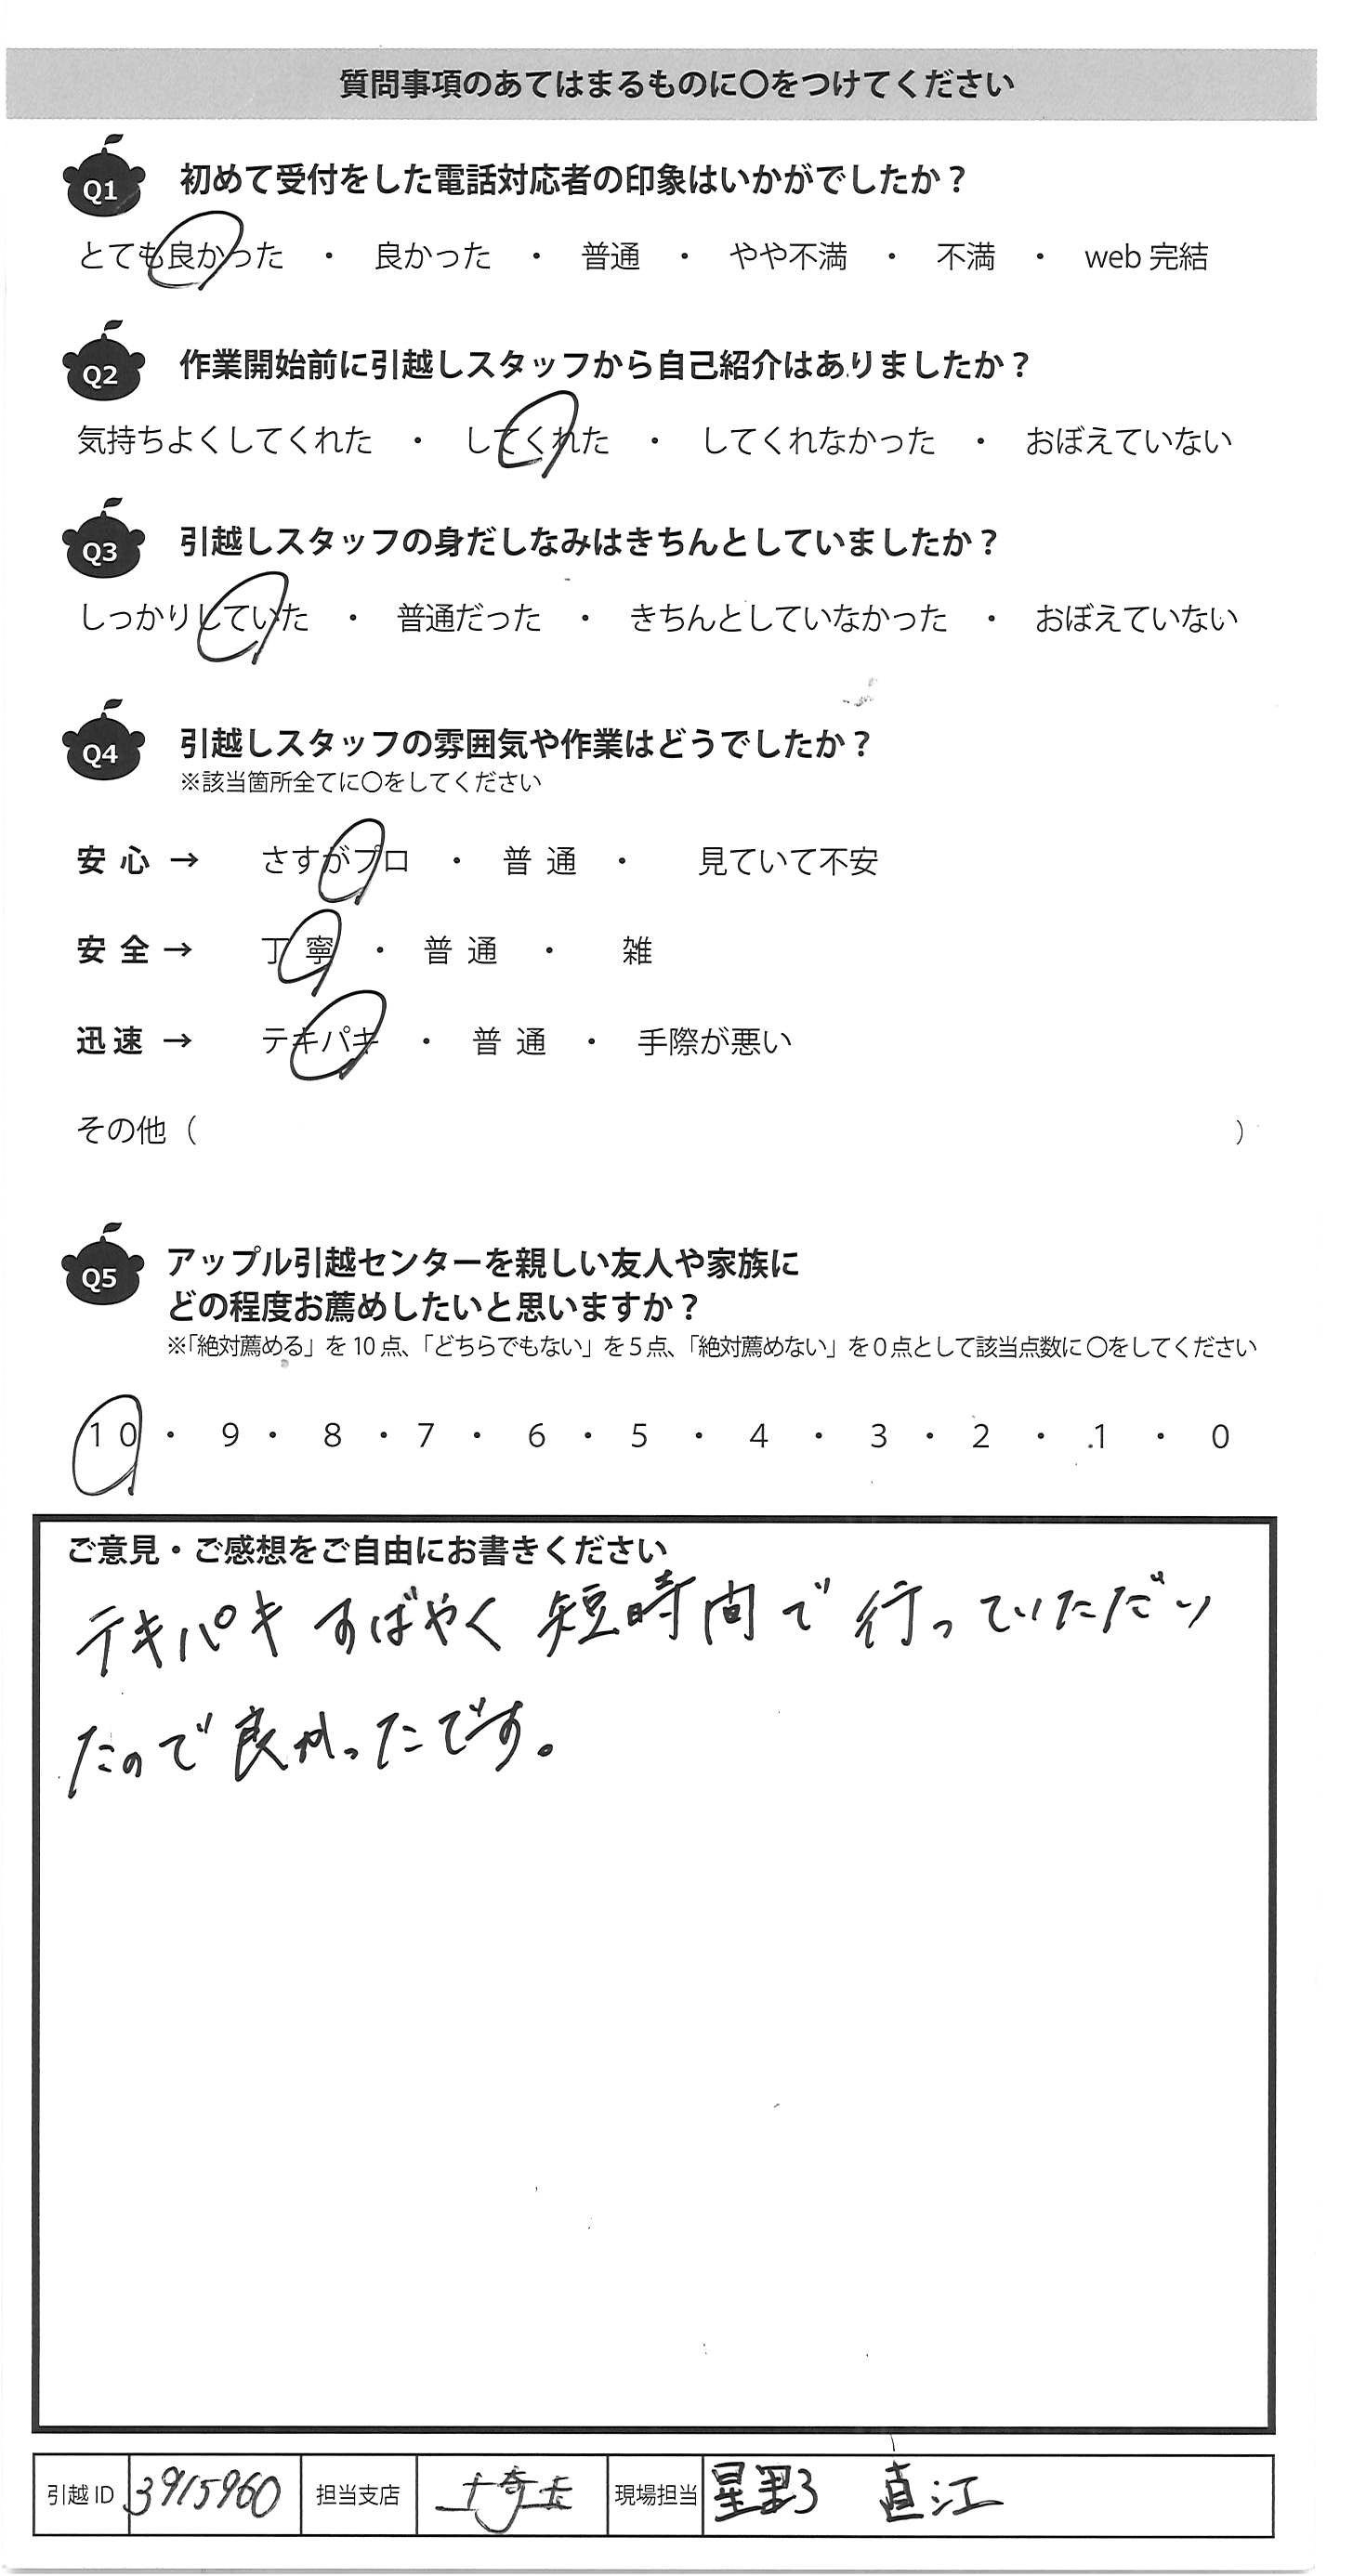 質問事項のあてはまるものに〇をつけてください
Q1 初めて受付をした電話対応者の印象はいかがでしたか？
とても良かった ・ 良かった ・ 普通 ・ やや不満 ・ 不満 ・ web 完結
Q2 作業開始前に引越しスタッフから自己紹介はありましたか？
気持ちよくしてくれた ・ してくれた ・ してくれなかった ・ おぼえていない
Q3 引越しスタッフの身だしなみはきちんとしていましたか？
しっかりしていた ・ 普通だった ・ きちんとしていなかった ・ おぼえていない
Q4 引越しスタッフの雰囲気や作業はどうでしたか？
※該当箇所全てに〇をしてください
安 心 → さすがプロ ・ 普 通 ・ 見ていて不安
安 全 → 丁 寧 ・ 普 通 ・ 雑
迅 速 → テキパキ ・ 普 通 ・ 手際が悪い
その他（ ）
Q5 アップル引越センターを親しい友人や家族に
どの程度お薦めしたいと思いますか？
※「絶対薦める」を 10 点、「どちらでもない」を 5 点、「絶対薦めない」を 0 点として該当点数に 〇をしてください
10 ・ 9 ・ 8 ・ 7 ・ 6 ・ 5 ・ 4 ・ 3 ・ 2 ・ 1 ・ 0
ご意見・ご感想をご自由にお書きください
テキパキ すばやく 短時間で 行っていただい
たので良かったです。
引越 ID 3915960 担当支店 埼玉 現場担当 直江